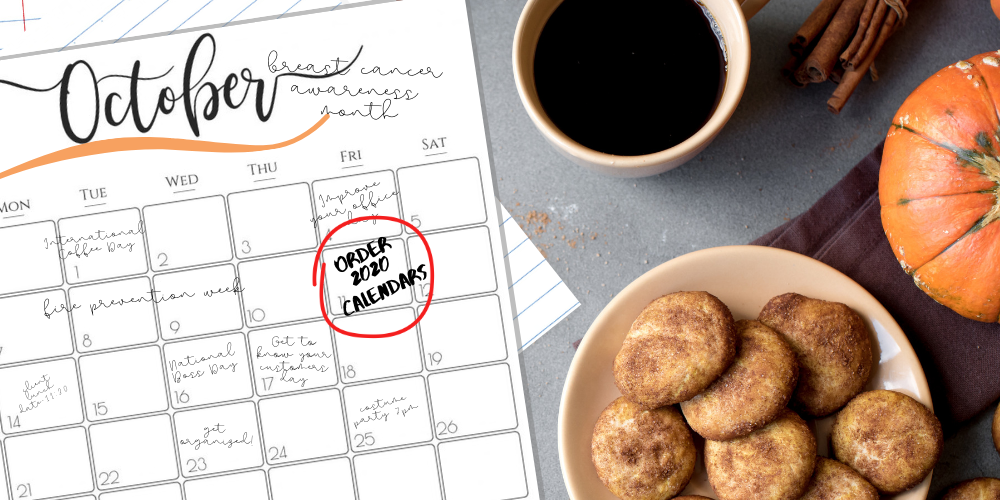 October
breast cancer
awareness
month
MON TUE WED THU FRI SAT
International
Coffee Day
1
2
3
Improve
your office
day
4
5
fire prevention week
7
8
9
10
ORDER
2020
CALENDARS
12
client
lunch
date 11:30
14
15
National
Boss Day
16
Get to
know your
customers
day
17
18
19
21
22
get
organized!
23
24
costume
party 7pm
25
26